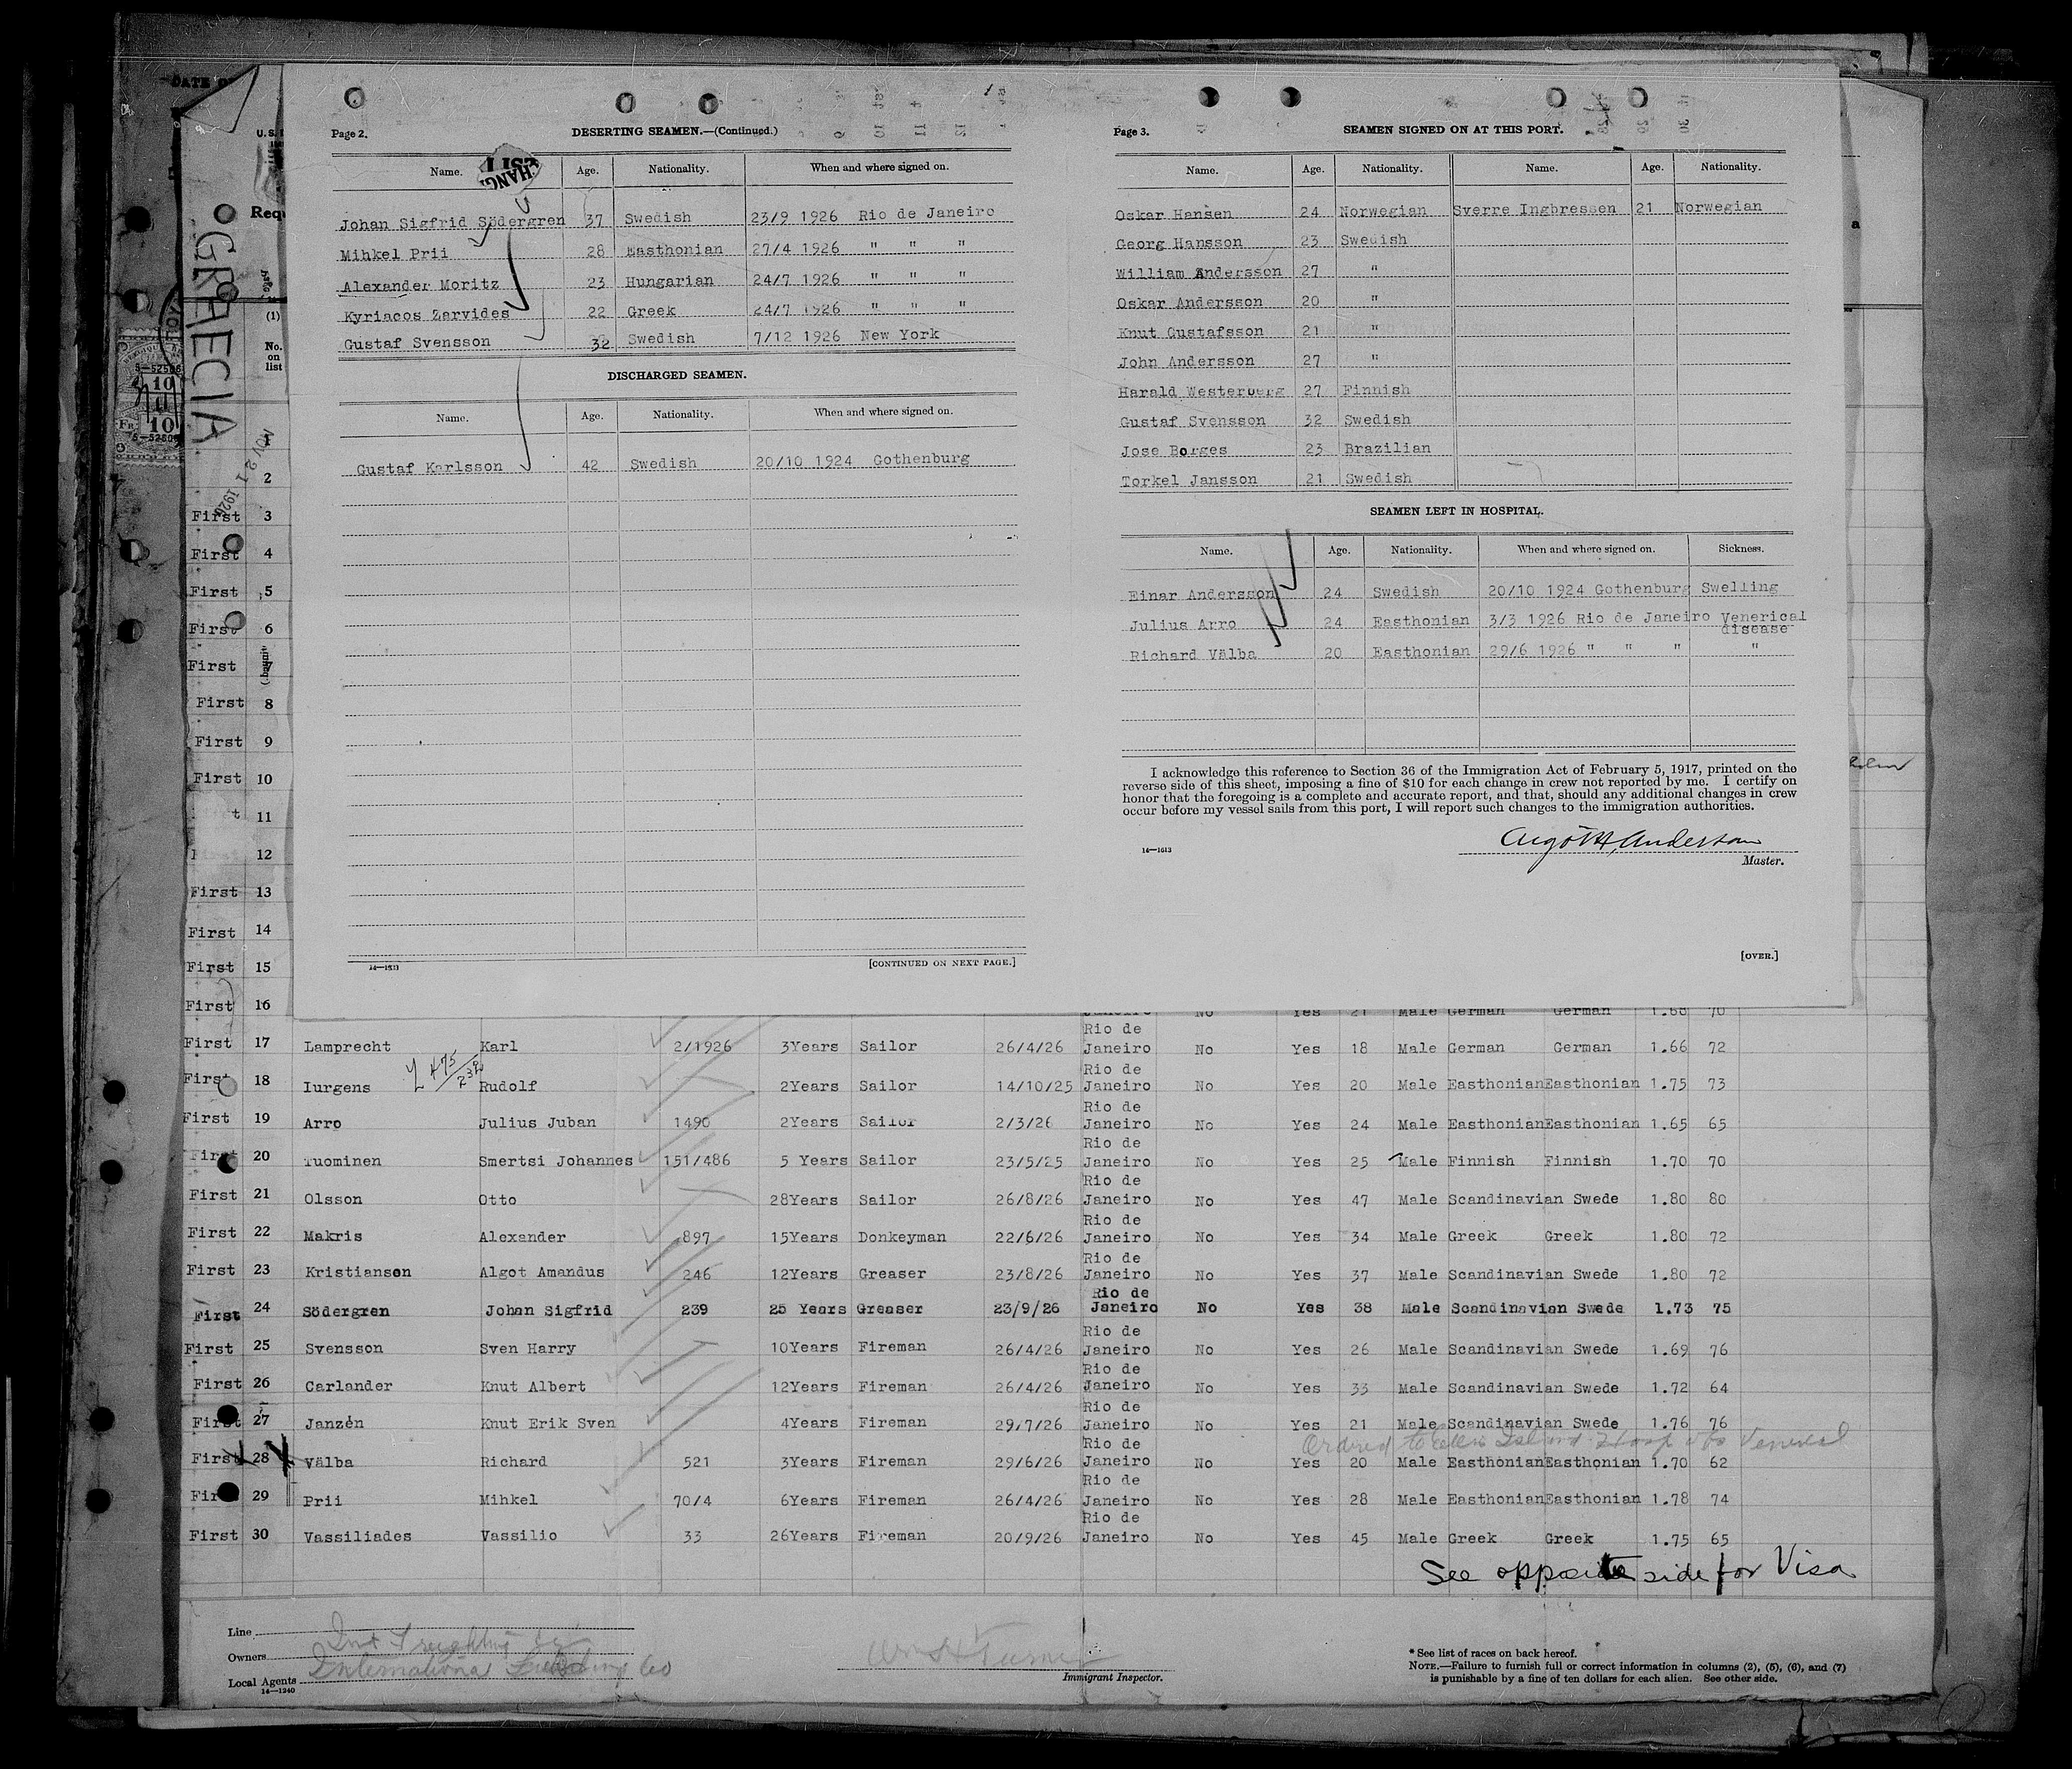 DATE OF
U.S.
Requ
(1)
No.
on
list
GRAECIA
S-52506
10
10
FR.
NOV 21 1926
Page 2.
DESERTING SEAMEN.—(Continued.)
Name. Age. Nationality. When and where signed on.
Johan Sigfrid Södergren 37 Swedish 23/9 1926 Rio de Janeiro
Mihkel Prii 28 Easthonian 27/4 1926 " " "
Alexander Moritz 23 Hungarian 24/7 1926 " " "
Kyriacos Zervides 22 Greek 24/7 1926 " " "
Gustaf Svensson 32 Swedish 7/12 1926 New York
DISCHARGED SEAMEN.
Name. Age. Nationality. When and where signed on.
Gustaf Karlsson 42 Swedish 20/10 1924 Gothenburg
[CONTINUED ON NEXT PAGE.]
Page 3.
SEAMEN SIGNED ON AT THIS PORT.
Name. Age. Nationality. Name. Age. Nationality.
Oskar Hansen 24 Norwegian Sverre Ingbressen 21 Norwegian
Georg Hansson 23 Swedish
William Andersson 27 "
Oskar Andersson 20 "
Knut Gustafsson 21 "
John Andersson 27 "
Harald Westerberg 27 Finnish
Gustaf Svensson 32 Swedish
Jose Borges 23 Brazilian
Torkel Jansson 21 Swedish
SEAMEN LEFT IN HOSPITAL.
Name. Age. Nationality. When and where signed on. Sickness.
Einar Andersson 24 Swedish 20/10 1924 Gothenburg Swelling
Julius Arro 24 Easthonian 3/3 1926 Rio de Janeiro Venerical
disease
Richard Välba 20 Easthonian 29/6 1926 " " " "
I acknowledge this reference to Section 36 of the Immigration Act of February 5, 1917, printed on the
reverse side of this sheet, imposing a fine of $10 for each change in crew not reported by me. I certify on
honor that the foregoing is a complete and accurate report, and that, should any additional changes in crew
occur before my vessel sails from this port, I will report such changes to the immigration authorities.
14—1613
Master.
[OVER.]
1
2
First 3
First 4
First 5
First 6
First 7
First 8
First 9
First 10
11
12
First 13
First 14
First 15
First 16 Janeiro No Yes 21 Male German German 1.68 70
First 17 Lamprecht Karl 2/1926 3Years Sailor 26/4/26 Rio de Janeiro No Yes 18 Male German German 1.66 72
First 18 Iurgens Rudolf 2Years Sailor 14/10/25 Rio de Janeiro No Yes 20 Male Easthonian Easthonian 1.75 73
First 19 Arro Julius Juban 1490 2Years Sailor 2/3/26 Rio de Janeiro No Yes 24 Male Easthonian Easthonian 1.65 65
First 20 Tuominen Smertsi Johannes 151/486 5 Years Sailor 23/5/25 Rio de Janeiro No Yes 25 Male Finnish Finnish 1.70 70
First 21 Olsson Otto 28Years Sailor 26/8/26 Rio de Janeiro No Yes 47 Male Scandinavian Swede 1.80 80
First 22 Makris Alexander 897 15Years Donkeyman 22/6/26 Rio de Janeiro No Yes 34 Male Greek Greek 1.80 72
First 23 Kristianson Algot Amandus 246 12Years Greaser 23/8/26 Rio de Janeiro No Yes 37 Male Scandinavian Swede 1.80 72
First 24 Södergren Johan Sigfrid 239 25 Years Greaser 23/9/26 Rio de Janeiro No Yes 38 Male Scandinavian Swede 1.73 75
First 25 Svensson Sven Harry 10Years Fireman 26/4/26 Rio de Janeiro No Yes 26 Male Scandinavian Swede 1.69 76
First 26 Carlander Knut Albert 12Years Fireman 26/4/26 Rio de Janeiro No Yes 33 Male Scandinavian Swede 1.72 64
First 27 Janzén Knut Erik Sven 4Years Fireman 29/7/26 Rio de Janeiro No Yes 21 Male Scandinavian Swede 1.76 76
Ordered to Ellis Island Hosp
First 28 Välba Richard 521 3Years Fireman 29/6/26 Rio de Janeiro No Yes 20 Male Easthonian Easthonian 1.70 62
First 29 Prii Mihkel 70/4 6Years Fireman 26/4/26 Rio de Janeiro No Yes 28 Male Easthonian Easthonian 1.78 74
First 30 Vassiliades Vassilio 33 26Years Fireman 20/9/26 Rio de Janeiro No Yes 45 Male Greek Greek 1.75 65
See opposite side for Visa
Line
Owners
Local Agents International Co
14—1240
Immigrant Inspector.
* See list of races on back hereof.
NOTE.—Failure to furnish full or correct information in columns (2), (5), (6), and (7)
is punishable by a fine of ten dollars for each alien. See other side.